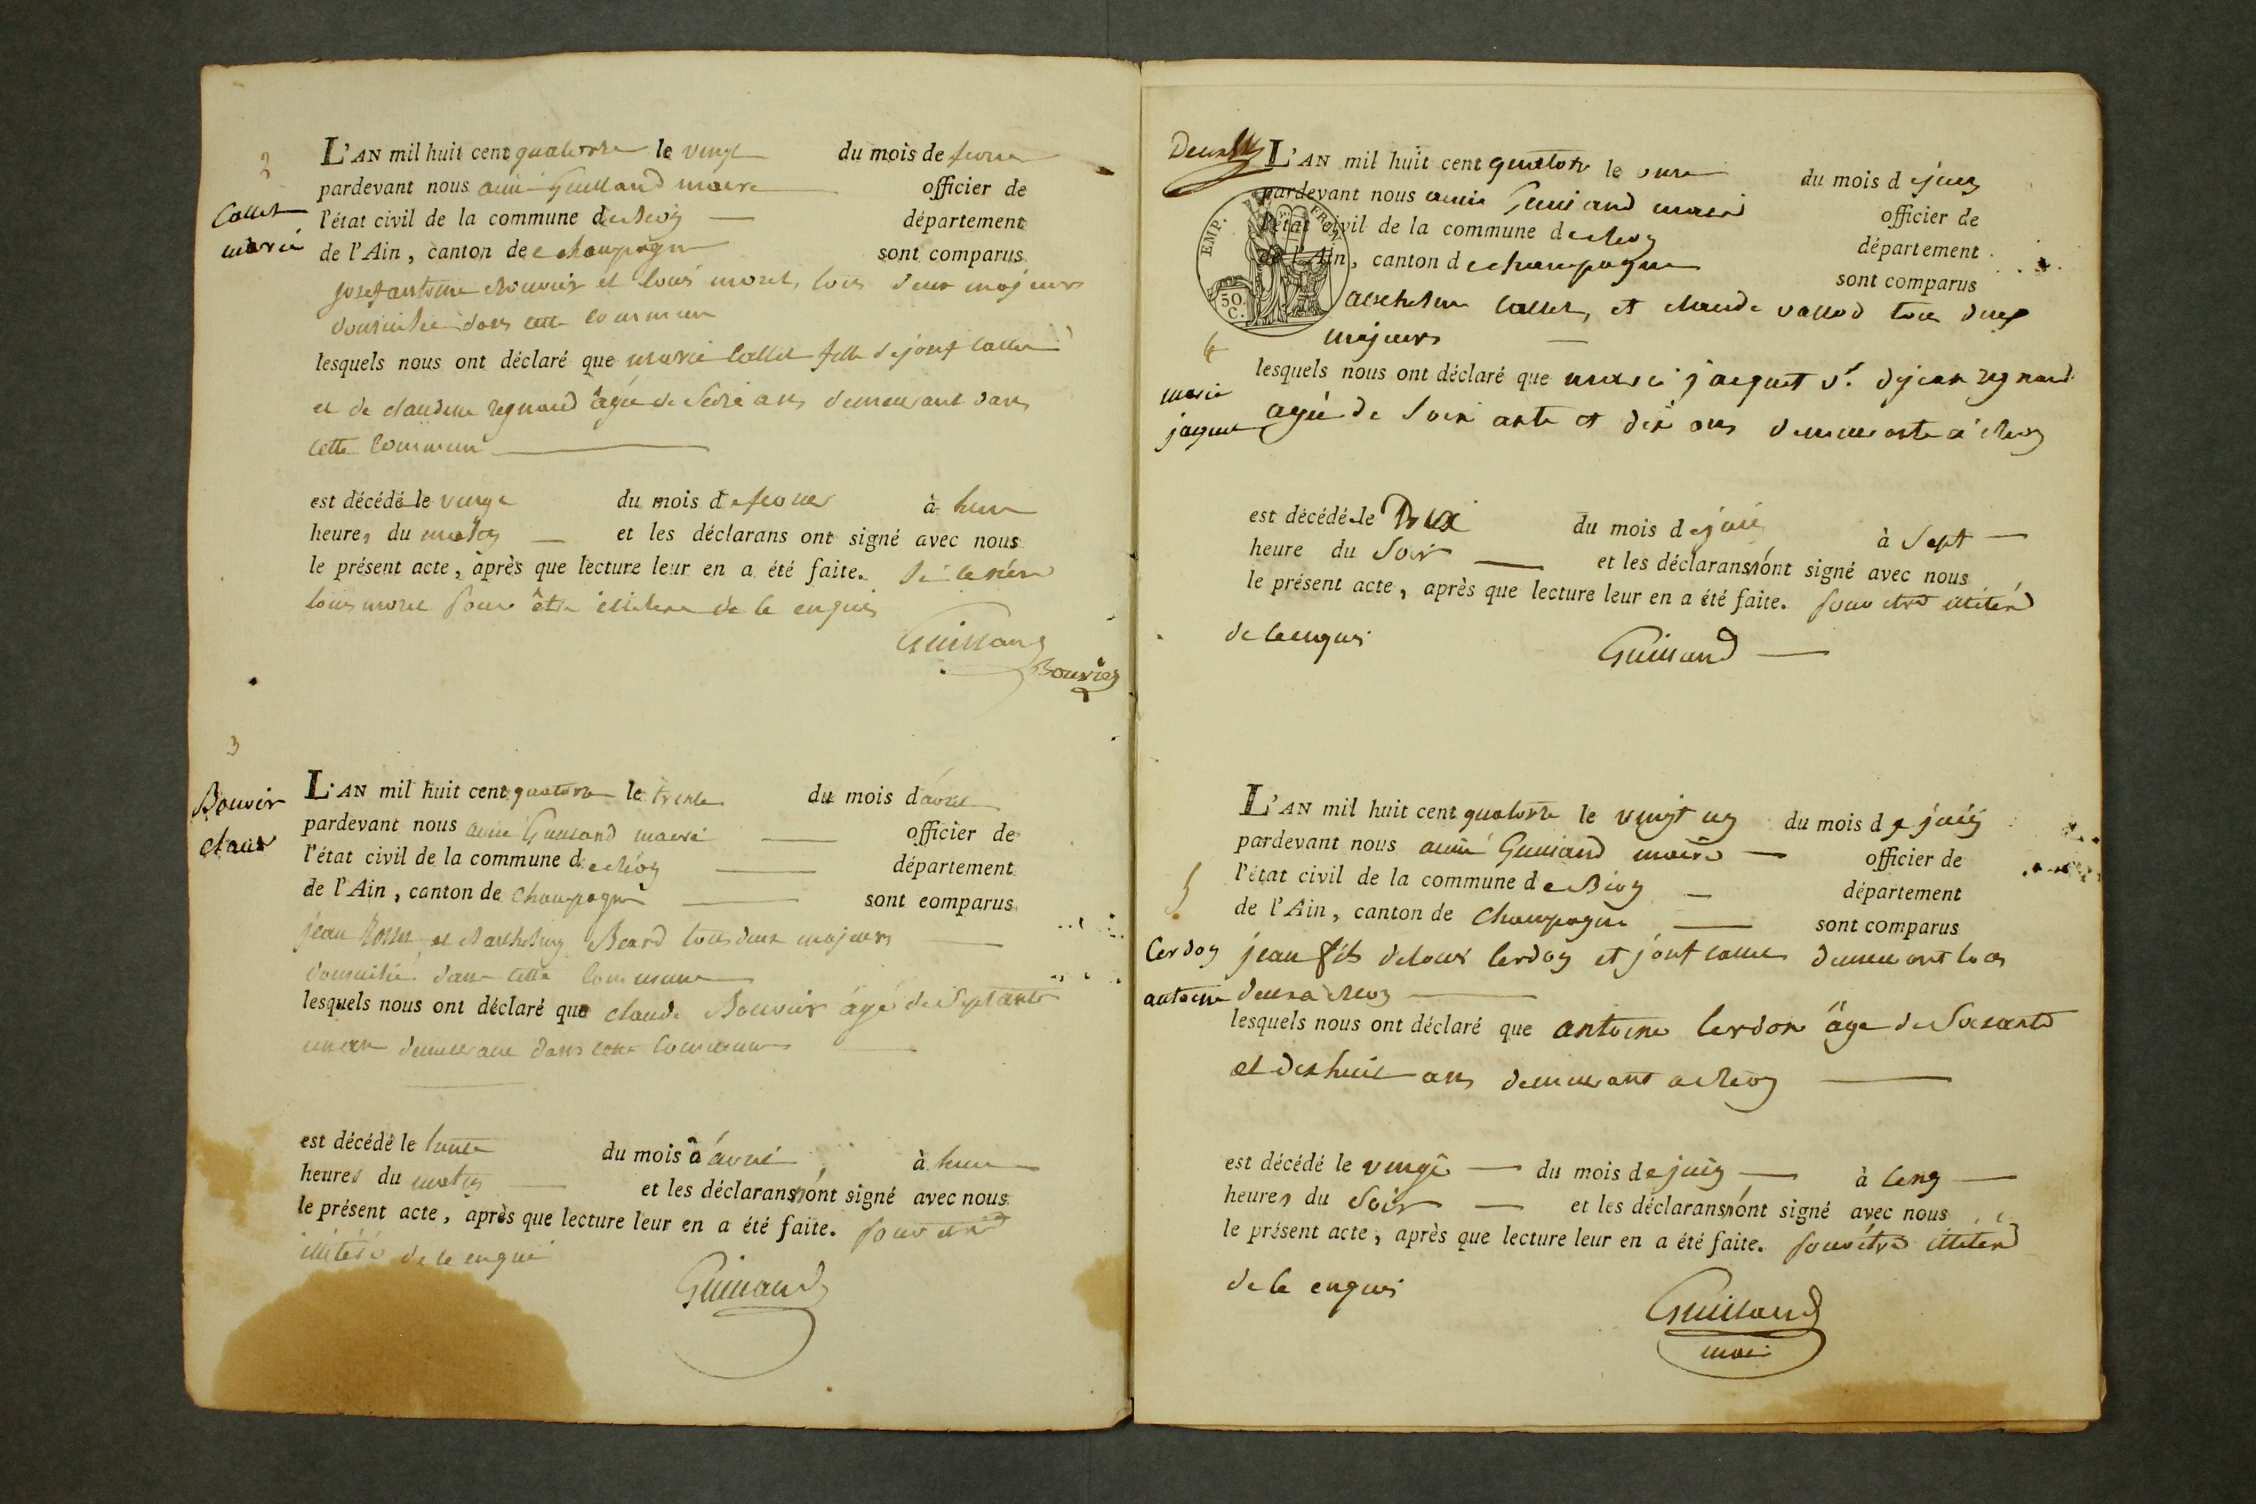 2
Callet
marie
L'AN mil huit cent quatorze le vingt du mois de fevrier
pardevant nous aimé Guilland maire officier de
l'état civil de la commune de département
de l'Ain, canton de champagne sont comparus
josef antoine Bouvier et louis moret, tous deux majeurs
domicilié dans cette commune
lesquels nous ont déclaré que marie Callet fille de josef callet
et de claudine regnaud âgée de ans demeurant dans
cette commune
est décédé le vingt du mois de fevrier à
heures du matin et les déclarans ont signé avec nous
le présent acte, après que lecture leur en a été faite.
louis moret pour être de ce enquis
Guilland
Bouvier
3
Bouvir
claud
L'AN mil huit cent quatorze le trente du mois d'avril
pardevant nous aimé Guilland maire officier de
l'état civil de la commune de département
de l'Ain, canton de champagne sont comparus
jean et Barthelmy tous deux majeurs
domicilié dans cette commune
lesquels nous ont déclaré que claude Bouvier âgé de septante
un an demeurant dans cette commune
est décédé le trente du mois d avril à
heures du matin et les déclarans n'ont signé avec nous
le présent acte, après que lecture leur en a été faite. pour etre
illitéré de ce enqui
Guilland
Deux
EMP. FRON.
50. C.
L'AN mil huit cent quatorze le onze du mois de juin
pardevant nous aimé Guilland maire officier de
l'état civil de la commune de département
de l'Ain, canton de champagne sont comparus
callet, et claude vallod tous deux
majeurs
4
marie
jaquet
lesquels nous ont déclaré que marie jacquet v.e de jean regnaud
agée de soixante et dix ans demeurante à
est décédé le Dix du mois de juin à sept
heure du soir et les déclarans n'ont signé avec nous
le présent acte, après que lecture leur en a été faite. pour etre illitéré
de ce enquis
Guilland
5
Cerdon
antoine
L'AN mil huit cent quatorze le vingt un du mois de juin
pardevant nous aimé Guilland maire officier de
l'état civil de la commune de département
de l'Ain, canton de champagne sont comparus
jean fils de louis Cerdon et josef callet demeurant tous
deux à
lesquels nous ont déclaré que antoine Cerdon âge de soixante
et dix huit ans demeurant a
est décédé le vingt du mois de juin à cinq
heures du soir et les déclarans n'ont signé avec nous
le présent acte, après que lecture leur en a été faite. pour être illitéré
de ce enquis
Guilland
maire